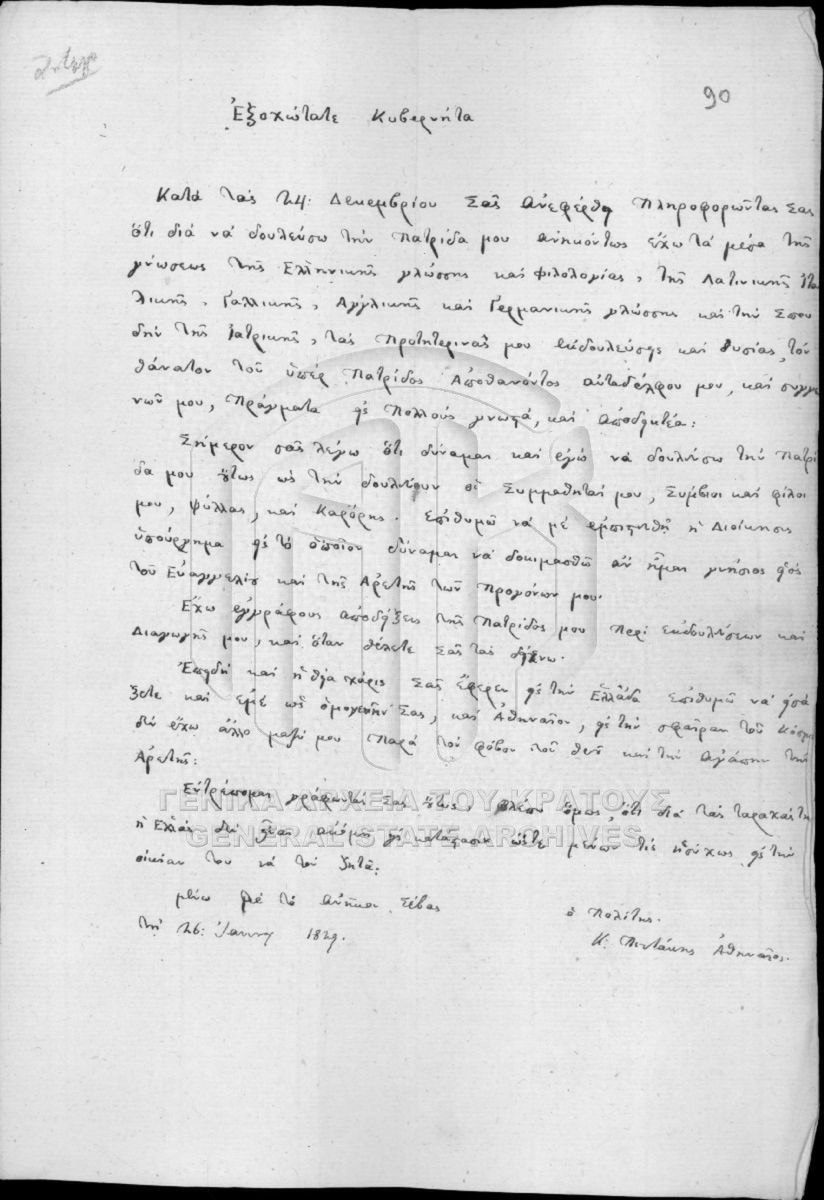 90
Ἐξοχώτατε Κυβερνῆτα
Κατὰ τὰς 24: Δεκεμβρίου Σᾶς ἀνεφέρθη πληροφορῶντας Σας
ὅτι διὰ νὰ δουλεύσω τὴν πατρίδα μου ἀνηκόντως ἔχω τὰ μέσα τῆς
γνώσεως τῆς Ἑλληνικῆς γλώσσης καὶ φιλολογίας, τῆς Λατινικῆς Ἰτα
λικῆς, Γαλλικῆς, Ἀγγλικῆς καὶ Γερμανικῆς γλώσσης καὶ τὴν Σπου
δὴν τῆς Ἰατρικῆς, τὰς προτητερινάς μου ἐκδουλεύσεις καὶ θυσίας, τὸν
θάνατον τοῦ ὑπὲρ Πατρίδος ἀποθανόντος αὐταδέλφου μου, καὶ συγγε
νῶν μου, πράγματα εἰς πολλοὺς γνωστά, καὶ ἀποδεικτέα:
Σήμερον σᾶς λέγω ὅτι δύναμαι καὶ ἐγὼ νὰ δουλεύσω τὴν πατρί
δα μου οὕτως ὡς τὴν δουλεύουν οἱ Συμμαθηταί μου, Σύμβιοι καὶ φίλοι
μου, Ψύλλας, καὶ Καρόρης. Ἐπιθυμῶ νὰ μὲ ἐμπιστευθῇ ἡ Διοίκησις
ὑπούργημα εἰς τὸ ὁποῖον δύναμαι νὰ δοκιμασθῶ ἂν ἦμαι γνήσιος υἱὸς
τοῦ Εὐαγγελίου καὶ τῆς Ἀρετῆς τῶν προγόνων μου.
Ἔχω ἐγγράφους ἀποδείξεις τῆς Πατρίδος μου περὶ ἐκδουλεύσεων καὶ
Διαγωγῆς μου, καὶ ὅταν θέλετε Σᾶς τὰς δείχνω.
Ἐπειδὴ καὶ ἡ θεία χάρις Σᾶς ἔφερεν εἰς τὴν Ἑλλάδα ἐπιθυμῶ νὰ εἰσά
ξετε καὶ ἐμὲ ὡς ὁμογενῆν Σας, καὶ Ἀθηναῖον, εἰς τὴν σφαῖραν τοῦ Κόσμου
δὲν ἔχω ἄλλο μαζύ μου παρὰ τὸν φόβον τοῦ θεοῦ καὶ τὴν ἀγάπην τῆς
Ἀρετῆς:
Ἐντρέπομαι γράφωντάς Σας οὕτως, βλέπω ὅμως, ὅτι διὰ τὰς ταραχὰς της
ἡ Ἑλλὰς δὲν εἶναι ἀκόμη εἰς κατάστασιν ὥστε μένων τὶς ἡσύχως εἰς τὴν
οἰκίαν του νὰ τὸν ζητᾷ:
μένω μὲ τὸ ἀνῆκον Σέβας
τῇ 26: Ἰαννου 1829.
ὁ Πολίτης.
Κ: Πιττάκης Ἀθηναῖος.
ΓΕΝΙΚΑ ΑΡΧΕΙΑ ΤΟΥ ΚΡΑΤΟΥΣ
GENERAL STATE ARCHIVES